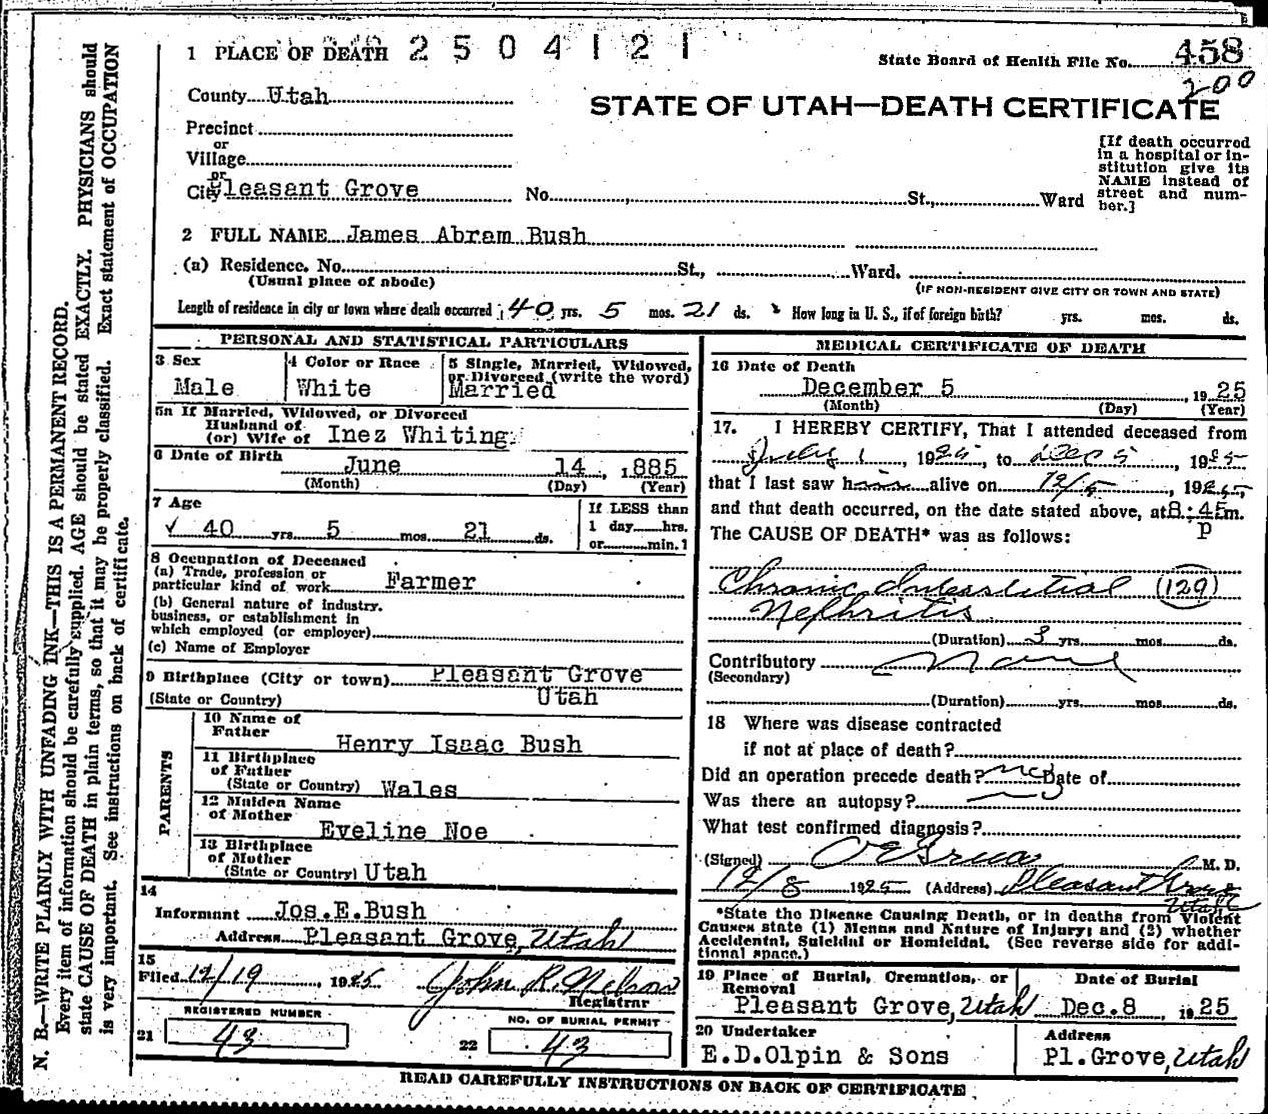 1 PLACE OF DEATH 2504121
State Board of Health File No. 458
200
County Utah
STATE OF UTAH—DEATH CERTIFICATE
Precinct
or
Village
or
City Pleasant Grove No. St., Ward
[If death occurred
in a hospital or in-
stitution give its
NAME instead of
street and num-
ber.]
2 FULL NAME James Abram Bush
(a) Residence. No. St., Ward.
(Usual place of abode) (IF NON-RESIDENT GIVE CITY OR TOWN AND STATE)
Length of residence in city or town where death occurred 40 yrs. 5 mos. 21 ds. How long in U. S., if of foreign birth? yrs. mos. ds.
PERSONAL AND STATISTICAL PARTICULARS
3 Sex
Male
4 Color or Race
White
5 Single, Married, Widowed,
or Divorced (write the word)
Married
5a If Married, Widowed, or Divorced
Husband of
(or) Wife of Inez Whiting
6 Date of Birth
June 14, 1885
(Month) (Day) (Year)
7 Age
✓ 40 yrs. 5 mos. 21 ds.
If LESS than
1 day hrs.
or min.?
8 Occupation of Deceased
(a) Trade, profession or
particular kind of work Farmer
(b) General nature of industry,
business, or establishment in
which employed (or employer)
(c) Name of Employer
9 Birthplace (City or town) Pleasant Grove
(State or Country) Utah
PARENTS
10 Name of
Father
Henry Isaac Bush
11 Birthplace
of Father
(State or Country) Wales
12 Maiden Name
of Mother
Eveline Noe
13 Birthplace
of Mother
(State or Country) Utah
14
Informant Jos.E.Bush
Address Pleasant Grove, Utah
15
Filed 12/19, 1925 John R. Nelson
Registrar
REGISTERED NUMBER
21 43
NO. OF BURIAL PERMIT
22 43
MEDICAL CERTIFICATE OF DEATH
16 Date of Death
December 5, 1925
(Month) (Day) (Year)
17. I HEREBY CERTIFY, That I attended deceased from
July 1, 1925, to Dec 5, 1925
that I last saw him alive on 12/5, 1925,
and that death occurred, on the date stated above, at 8:45 m.
P
The CAUSE OF DEATH* was as follows:
Chronic Interstitial (129)
Nephritis
(Duration) 3 yrs. mos. ds.
Contributory None
(Secondary)
(Duration) yrs. mos. ds.
18 Where was disease contracted
if not at place of death?
Did an operation precede death? no Date of
Was there an autopsy?
What test confirmed diagnosis?
(Signed) O E Grua M. D.
12/8 1925 (Address) Pleasant Grove
Utah
*State the Disease Causing Death, or in deaths from Violent
Causes state (1) Means and Nature of Injury; and (2) whether
Accidental, Suicidal or Homicidal. (See reverse side for addi-
tional space.)
19 Place of Burial, Cremation, or
Removal
Pleasant Grove, Utah
Date of Burial
Dec.8 1925
20 Undertaker
E.D.Olpin & Sons
Address
Pl.Grove, Utah
READ CAREFULLY INSTRUCTIONS ON BACK OF CERTIFICATE
N. B.—WRITE PLAINLY WITH UNFADING INK—THIS IS A PERMANENT RECORD.
Every item of information should be carefully supplied. AGE should be stated EXACTLY. PHYSICIANS should
state CAUSE OF DEATH in plain terms, so that it may be properly classified. Exact statement of OCCUPATION
is very important. See instructions on back of certificate.